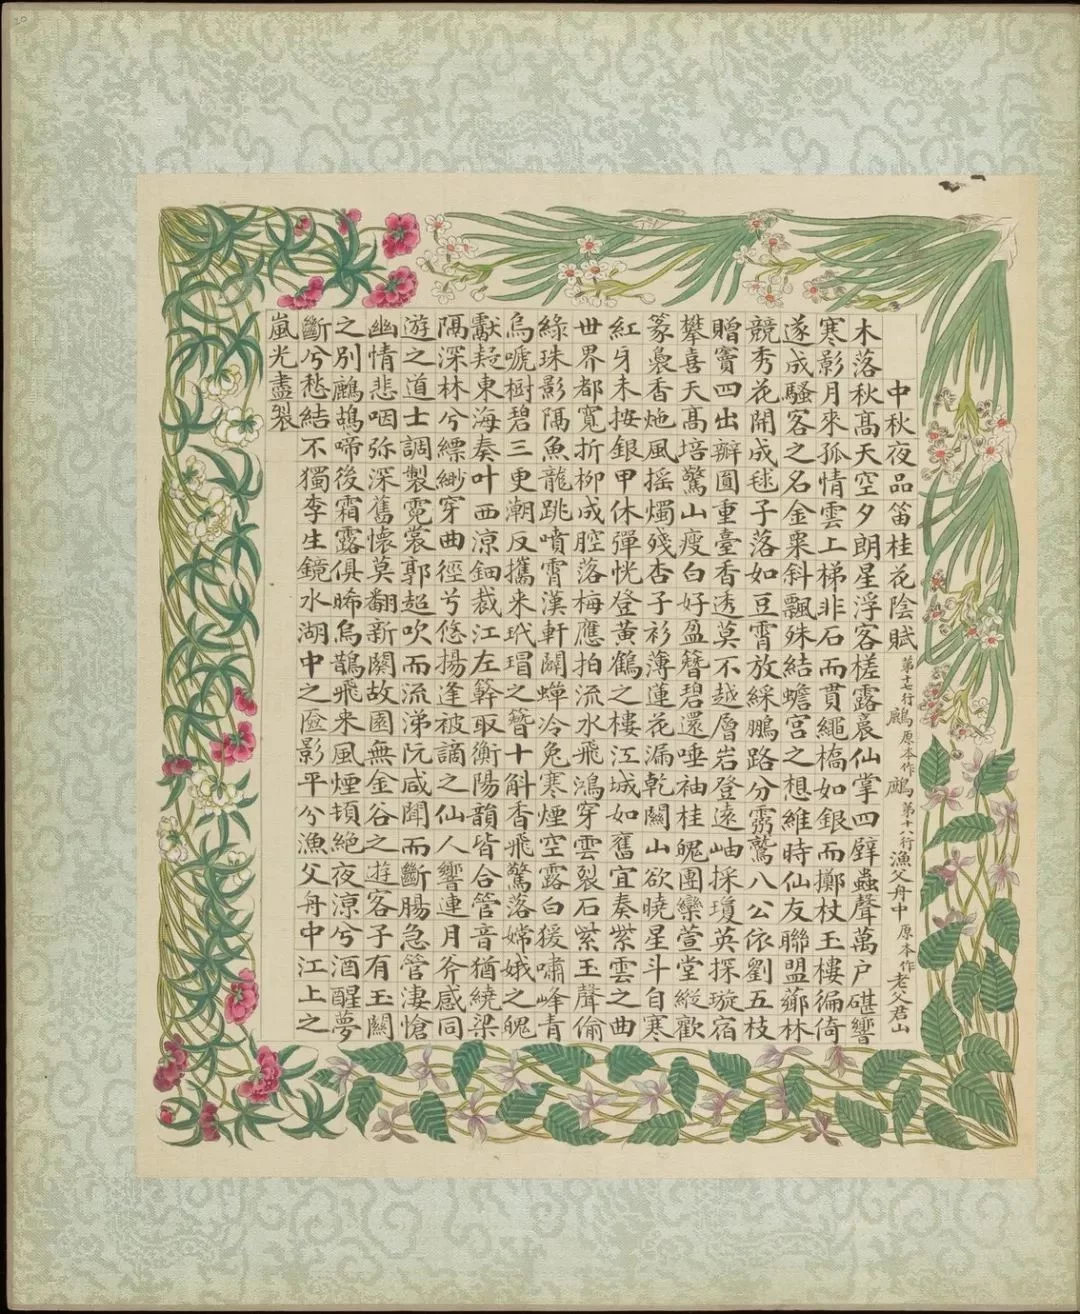 20
中秋夜品笛桂花陰賦 第十七行鷓原本作鷓第十八行漁父舟中原本作老父君山
木落秋高天空夕朗星浮客槎露裛仙掌四壁蟲聲萬户碪響
寒影月來孤情雲上梯非石而貫繩橋如銀而擲杖玉樓徧倚
遂成騷客之名金粟斜飄殊結蟾宮之想維時仙友聯盟薌林
競秀花開成毬子落如豆霄放綵鵬路分霧鷲八公依劉五枝
贈竇四出辦圓重臺香透莫不越層岩登遠岫採瓊英探璇宿
攀喜天高培驚山瘦白好盈簪碧還唾袖桂魄團欒萱堂縱歡
篆裊香炧風搖燭殘杏子衫薄蓮花漏乾闗山欲曉星斗自寒
紅牙未按銀甲休彈恍登黃鶴之樓江城如舊宜奏紫雲之曲
世界都寬折柳成腔落梅應拍流水飛鴻穿雲裂石紫玉聲偷
綠珠影隔魚龍跳噴霄漢軒闢蟬冷兔寒煙空露白猨嘯峰青
烏嗁樹碧三更潮反攜来玳瑁之簪十斛香飛驚落嫦娥之魄
獻疑東海奏叶西涼鈿裁江左簳取衡陽韻皆合管音猶繞梁
隔深林兮縹緲穿曲徑兮悠揚逢被謫之仙人響連月斧感同
遊之道士調製霓裳郭超吹而流涕阮咸聞而斷腸急管淒愴
幽情悲咽弥深舊懷莫翻新闋故園無金谷之遊客子有玉闗
之別鷓鴣啼後霜露俱晞烏鵲飛来風煙頓絕夜涼兮酒醒夢
斷兮愁結不獨李生鏡水湖中之匳影平兮漁父舟中江上之
嵐光盡裂